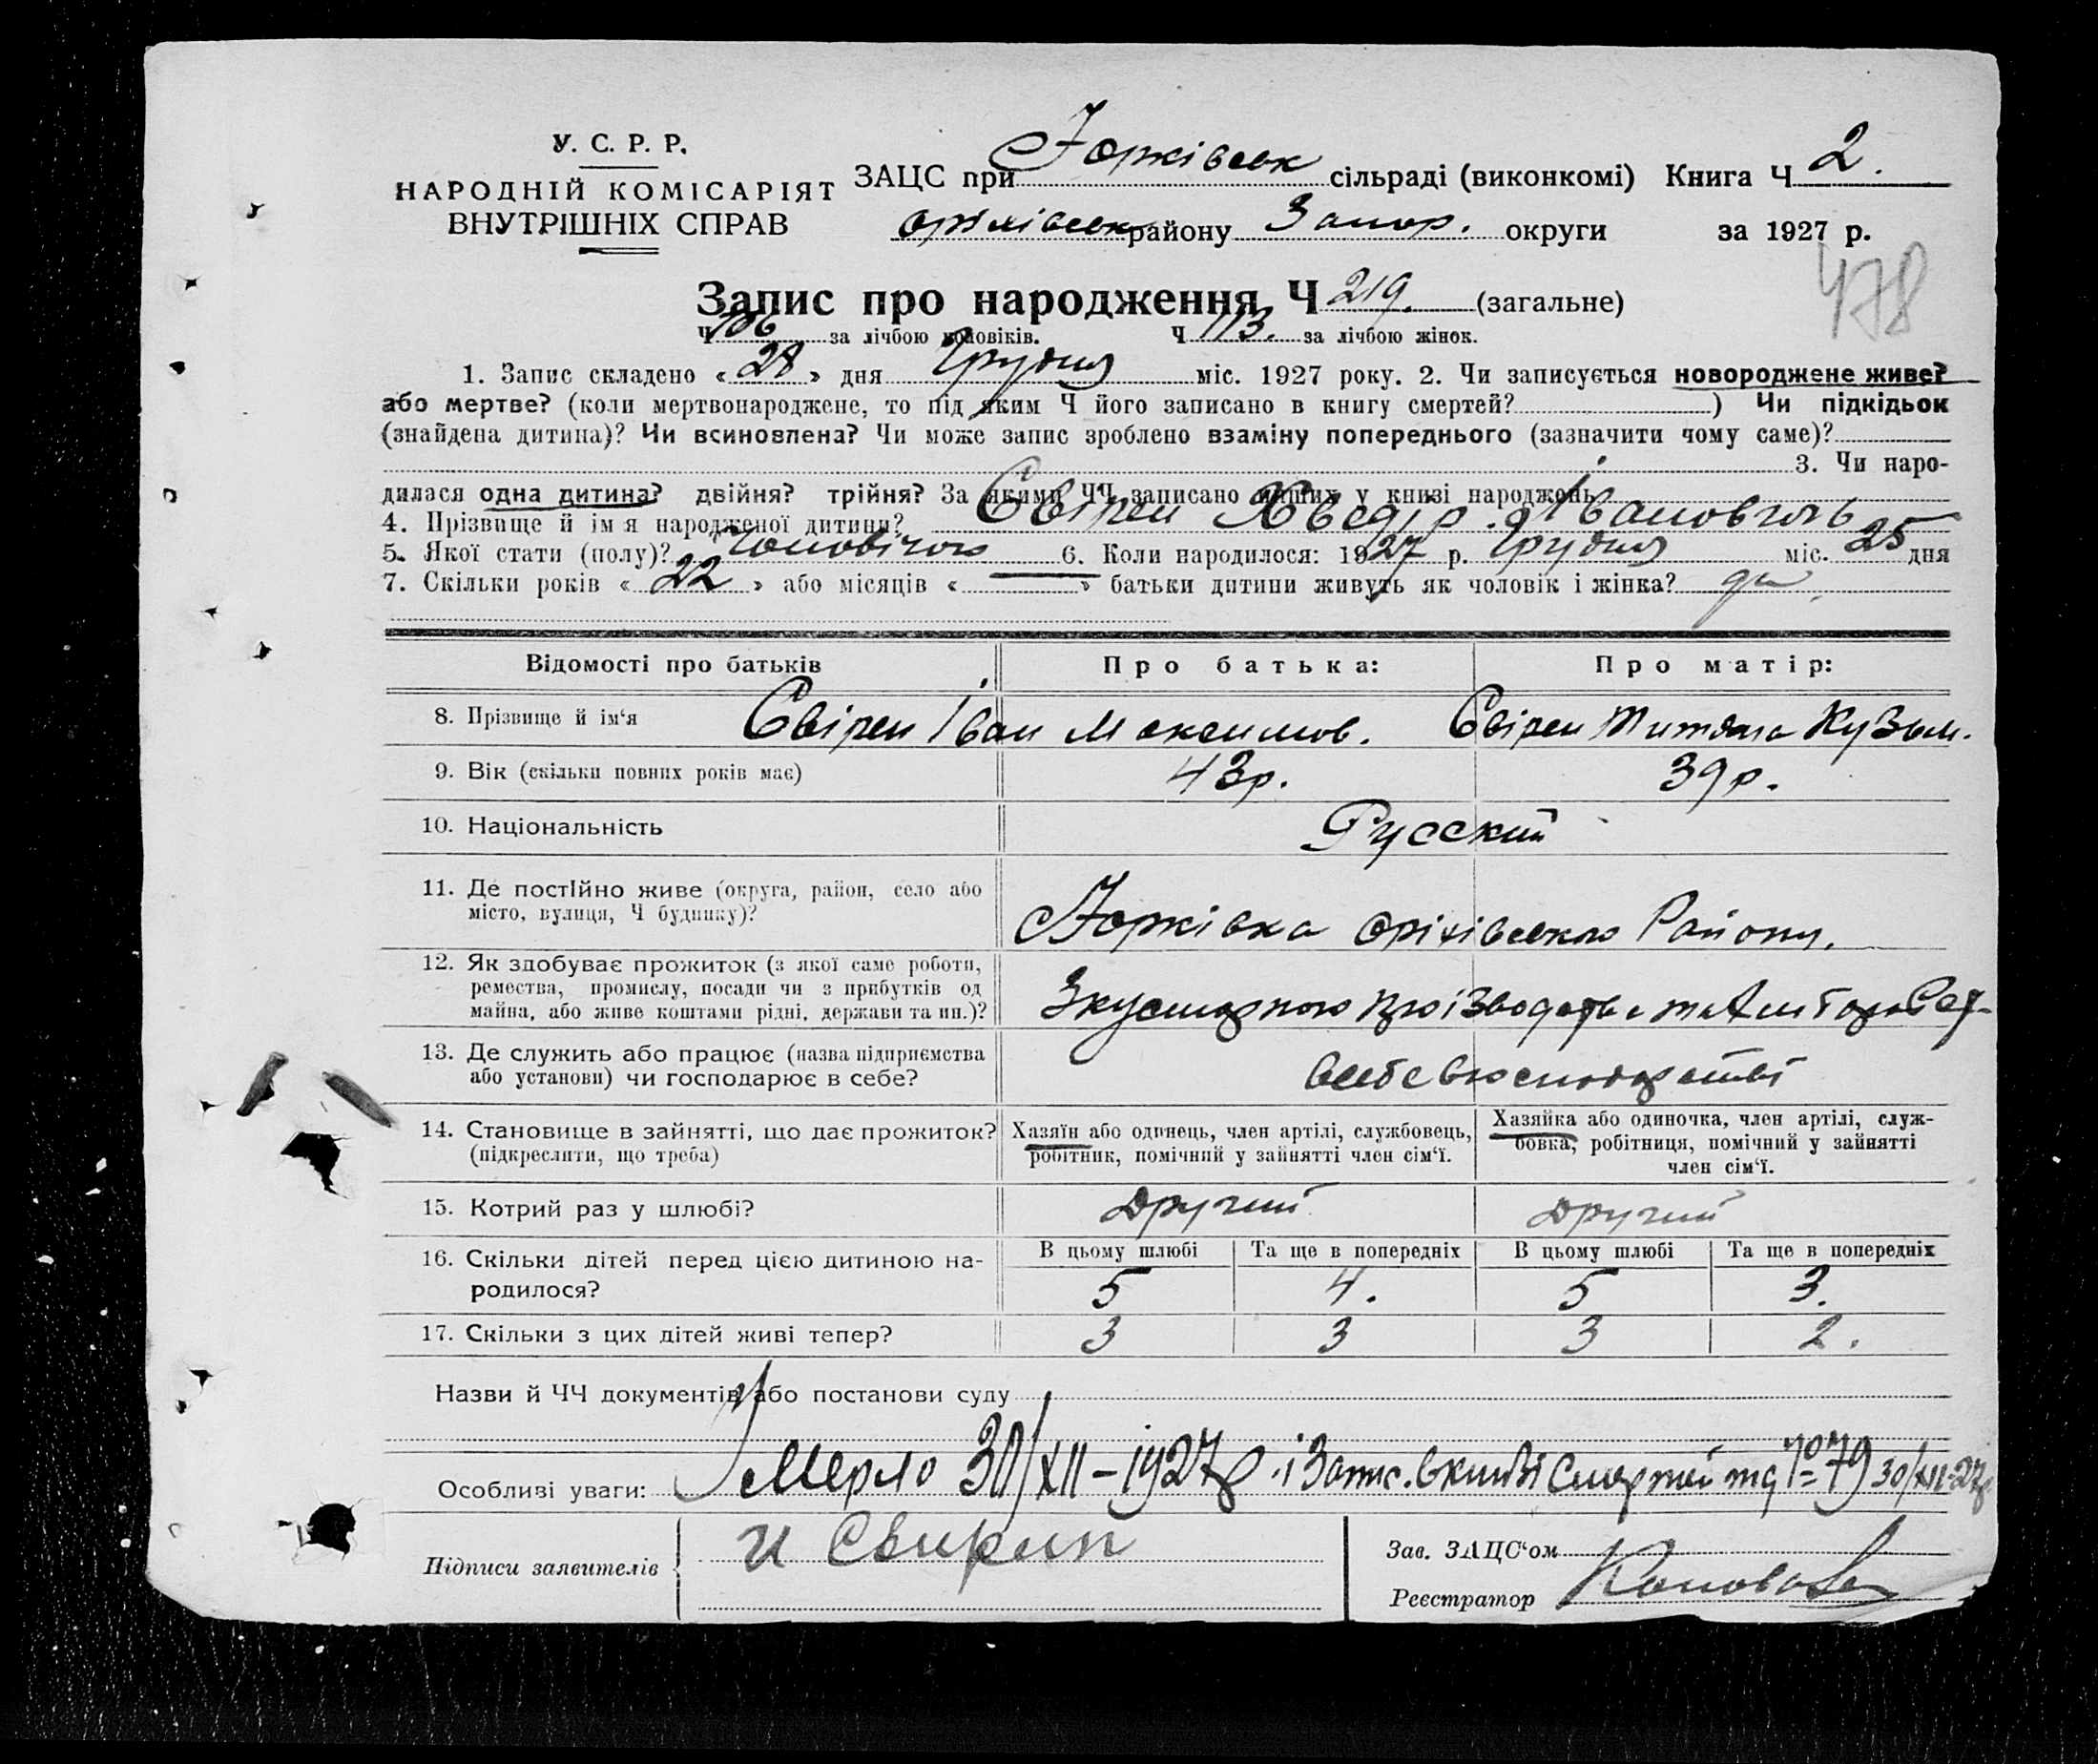 У. С. Р. Р.
НАРОДНІЙ КОМІСАРІЯТ
ВНУТРІШНІХ СПРАВ
ЗАЦС при Юрківськ сільраді (виконкомі) Книга Ч 2.
Оріхівськ району Запор. округи за 1927 р.
478
Запис про народження Ч 219. (загальне)
Ч 106 за лічбою чоловіків. Ч 113. за лічбою жінок.
1. Запис складено « 28 » дня Грудня міс. 1927 року. 2. Чи записується новороджене живе?
або мертве? (коли мертвонароджене, то під яким Ч його записано в книгу смертей? ) Чи підкідьок
(знайдена дитина)? Чи всиновлена? Чи може запис зроблено взаміну попереднього (зазначити чому саме)?
3. Чи наро-
дилася одна дитина? двійня? трійня? За якими ЧЧ записано інших у книзі народжень
4. Прізвище й ім'я народженої дитини? Свірен Хведір Івановичь
5. Якої стати (полу)? Чоловічого 6. Коли народилося: 1927 р. Грудня міс. 25 дня
7. Скільки років « 22 » або місяців « — » батьки дитини живуть як чоловік і жінка? да
Відомості про батьків Про батька: Про матір:
8. Прізвище й ім‘я Свірен Іван Максимов. Свірен Титяна Кузьм.
9. Вік (скільки повних років має) 43р. 39р.
10. Національність Русский
11. Де постІйно живе (округа, район, село або
місто, вулиця, Ч будинку)?
Юрківка Оріхівського Району.
12. Як здобуває прожиток (з якої саме роботи,
ремества, промислу, посади чи з прибутків од
майна, або живе коштами рідні, держави та ин.)?
13. Де служить або працює (назва підприємства
або установи) чи господарює в себе?
всебе вхосподарстві
14. Становище в зайнятті, що дає прожиток?
(підкреслити, що треба)
Хазяїн або одинець, член артілі, службовець,
робітник, помічний у зайнятті член сім‘ї.
Хазяйка або одиночка, член артілі, служ-
бовка, робітниця, помічний у зайнятті
член сім‘ї.
15. Котрий раз у шлюбі? Другий Другий
16. Скільки дітей перед цією дитиною на-
родилося?
В цьому шлюбі Та ще в попередніх В цьому шлюбі Та ще в попередніх
5 4. 5 3.
17. Скільки з цих дітей живі тепер? 3 3 3 2.
Назви й ЧЧ документів або постанови суду
Особливі уваги: Умерло 30/XII-1927р. і Запис. вкнизі Смертей під № 79 30/XII-27р.
Підписи заявителів И Свирин
Зав. ЗАЦС‘ом
Реєстратор